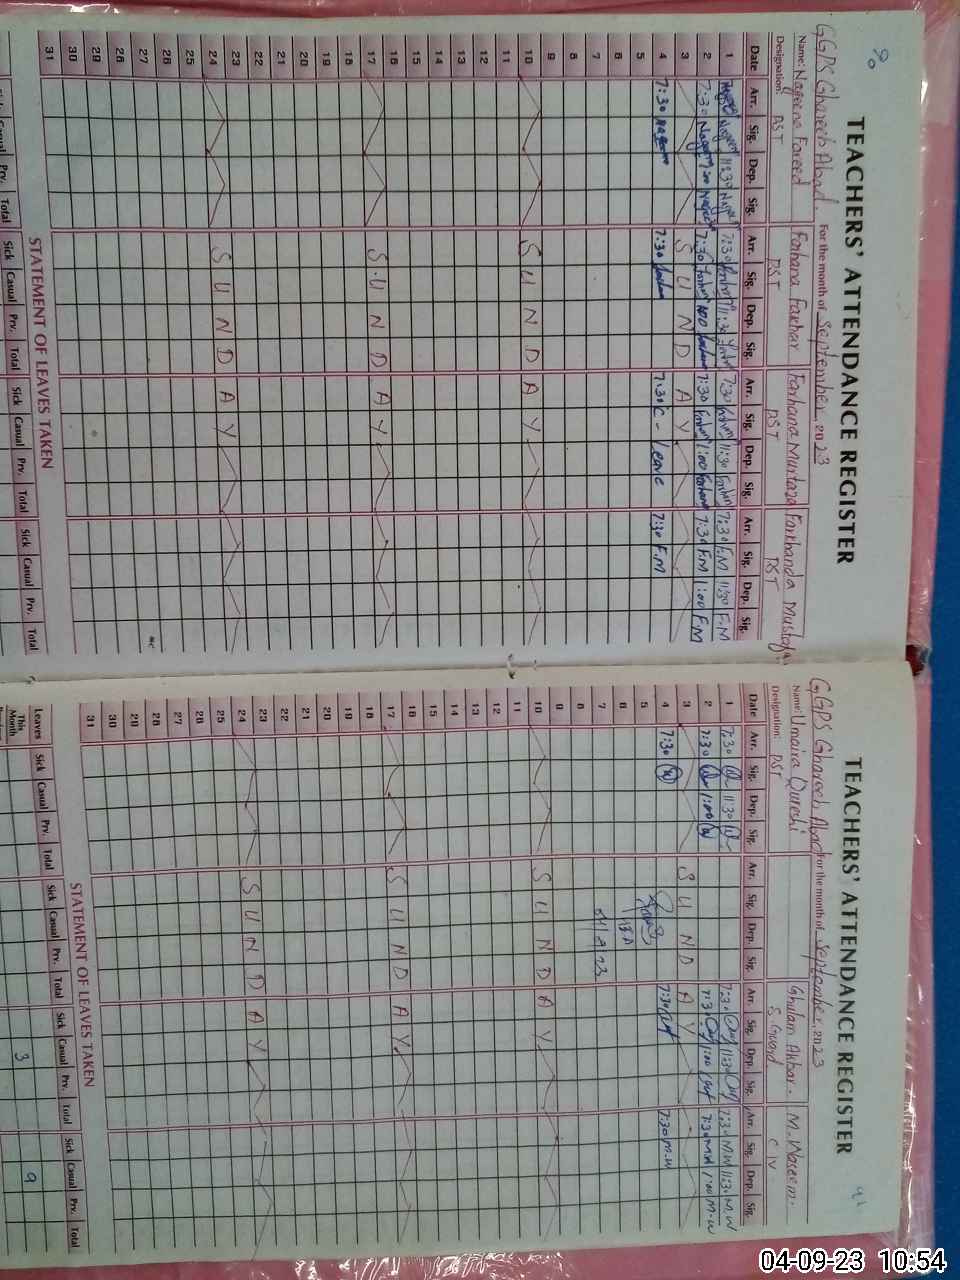 80
TEACHERS' ATTENDANCE REGISTER
GGPS Ghareeb Abad. For the month of September 2023
Name: Nageena Fareed Farhana Fakhar Farhana Murtaza Farkhanda Mustafa
Designation: PST PST PST PST
Date Arr. Sig. Dep. Sig. Arr. Sig. Dep. Sig. Arr. Sig. Dep. Sig. Arr. Sig. Dep. Sig.
1 11:30 7:30 11:30 7:30 11:30 7:30 F.M 11:30 F.M
2 7:30 7:30 7:30 1:00 7:30 F.M 1:00 F.M
3 SUNDAY
4 7:30 Nageena 7:30 7:30 C - leave 7:30 F.M
5
6
7
8
9
10 SUNDAY
11
12
13
14
15
16
17 SUNDAY
18
19
20
21
22
23
24 SUNDAY
25
26
27
28
29
30
31
STATEMENT OF LEAVES TAKEN
Sick Casual Prv. Total Sick Casual Prv. Total Sick Casual Prv. Total
TEACHERS' ATTENDANCE REGISTER
GGPS Ghareeb Abad For the month of September 2023
Name: Umaira Qureshi Ghulam Akbar. M. Waseem.
Designation: PST S. Guard C IV
Date Arr. Sig. Dep. Sig. Arr. Sig. Dep. Sig. Arr. Sig. Dep. Sig. Arr. Sig. Dep. Sig.
1 7:30 11:30 7:30 11:30 7:30 M.W 11:30 M.W
2 7:30 1:00 7:30 1:00 7:30 M.W 1:00 M.W
3 SUNDAY
4 7:30 7:30 7:30 M.W
5
6
7
8
9
10 SUNDAY
11
12
13
14
15
16
17 SUNDAY
18
19
20
21
22
23
24 SUNDAY
25
26
27
28
29
30
31
STATEMENT OF LEAVES TAKEN
Leaves Sick Casual Prv. Total Sick Casual Prv. Total Sick Casual Prv. Total Sick Casual Prv. Total
This Month 3 9
04-09-23 10:54